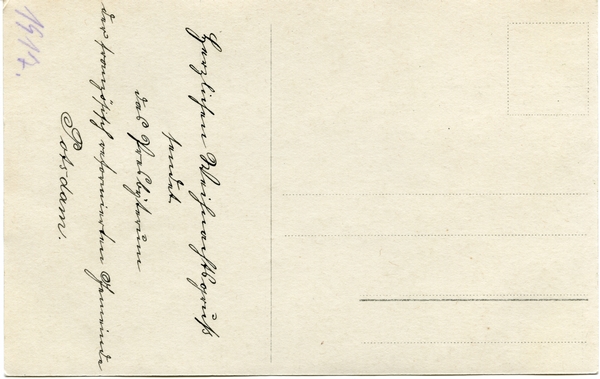 Herzlichen Weihnachtsgruß
sendet
das Presbyterium
der französisch reformierten Gemeinde
Potsdam.
1917.